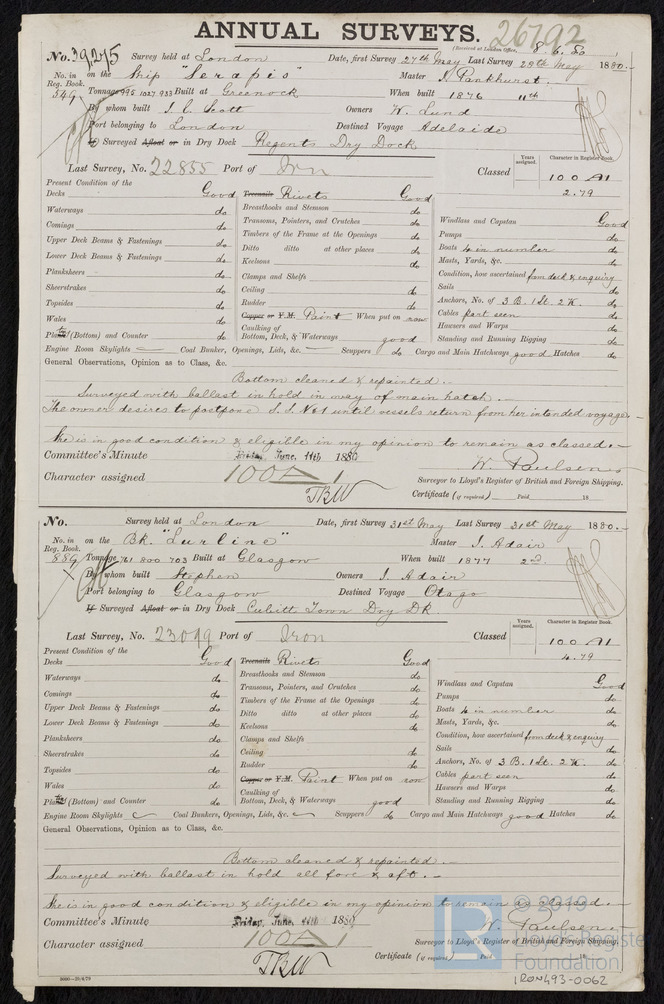 ANNUAL SURVEYS. 26792
(Received at London Office, 8.6.80
No. 39275 Survey held at London Date, first Survey 27th May Last Survey 29th May 1880.
No. in Reg. Book. on the Ship "Serapis" Master J. Pankhurst.
549 Tonnage 995 1027 933 Built at Greenock When built 1876 11th
By whom built J. C. Scott Owners W. Lund
Port belonging to London Destined Voyage Adelaide
If Surveyed Afloat or in Dry Dock Regents Dry Dock
Last Survey, No. 22855 Port of Irn Classed Years assigned. Character in Register Book. 100 A1
2.79
Present Condition of the
Decks Good
Waterways do
Comings do
Upper Deck Beams & Fastenings do
Lower Deck Beams & Fastenings do
Planksheers do
Sheerstrakes do
Topsides do
Wales do
Plates (Bottom) and Counter do
Treenails Rivets Good
Breasthooks and Stemson do
Transoms, Pointers, and Crutches do
Timbers of the Frame at the Openings do
Ditto ditto at other places do
Keelsons do
Clamps and Shelfs
Ceiling do
Rudder do
Copper or Y.M. Paint When put on now
Caulking of
Bottom, Deck, & Waterways good
Windlass and Capstan Good
Pumps do
Boats 4 in number do
Masts, Yards, &c. do
Condition, how ascertained from deck & enquiry
Sails do
Anchors, No. of 3 B. 1 St. 2 K. do
Cables part seen do
Hawsers and Warps do
Standing and Running Rigging do
Engine Room Skylights — Coal Bunker, Openings, Lids, &c. — Scuppers do Cargo and Main Hatchways good Hatches do
General Observations, Opinion as to Class, &c.
Bottom cleaned & repainted. —
Surveyed with ballast in hold in way of main hatch. —
The owner desires to postpone S.S. No 1 until vessels return from her intended voyage. —
She is in good condition & eligible in my opinion to remain as classed. —
Committee's Minute Friday, June, 11th 1880 W. Paulsen
Character assigned 100 A 1 Surveyor to Lloyd's Register of British and Foreign Shipping.
TBW Certificate (if required) Paid 18
No. Survey held at London Date, first Survey 31st May Last Survey 31st May 1880.
No. in Reg. Book. on the Bk. "Lurline" Master J. Adair
889 Tonnage 761 800 703 Built at Glasgow When built 1877 2nd
By whom built Stephen Owners J. Adair
Port belonging to Glasgow Destined Voyage Otago
If Surveyed Afloat or in Dry Dock Cubitt Town Dry Dk.
Last Survey, No. 23019 Port of Iron Classed Years assigned. Character in Register Book. 100 A1
4.79
Present Condition of the
Decks Good
Waterways do
Comings do
Upper Deck Beams & Fastenings do
Lower Deck Beams & Fastenings do
Planksheers do
Sheerstrakes do
Topsides do
Wales do
Plates (Bottom) and Counter do
Treenails Rivets Good
Breasthooks and Stemson do
Transoms, Pointers, and Crutches do
Timbers of the Frame at the Openings do
Ditto ditto at other places do
Keelsons do
Clamps and Shelfs
Ceiling do
Rudder do
Copper or Y.M. Paint When put on now
Caulking of
Bottom, Deck, & Waterways good
Windlass and Capstan Good
Pumps do
Boats 4 in number do
Masts, Yards, &c. do
Condition, how ascertained from deck & enquiry
Sails do
Anchors, No. of 3 B. 1 St. 2 K. do
Cables part seen do
Hawsers and Warps do
Standing and Running Rigging do
Engine Room Skylights Coal Bunkers, Openings, Lids, &c. Scuppers do Cargo and Main Hatchways good Hatches do
General Observations, Opinion as to Class, &c.
Bottom cleaned & repainted. —
Surveyed with ballast in hold all fore & aft. —
She is in good condition & eligible in my opinion to remain as classed. —
Committee's Minute Friday, June, 11th 1880 W. Paulsen
Character assigned 100 A 1 Surveyor to Lloyd's Register of British and Foreign Shipping.
TBW Certificate (if required) Paid 18
LR © 2019 Lloyd's Register Foundation
IRON493-0062